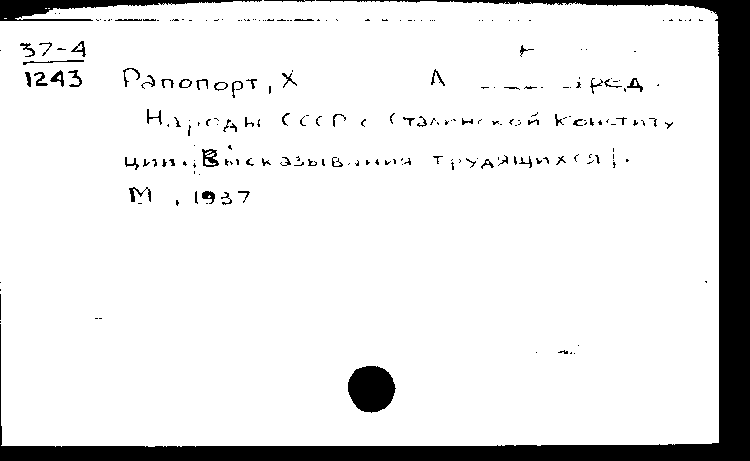 37-4
1243 Рапопорт, Х Л ред.
Народы СССР о Сталинской Конститу
ции. [Высказывания трудящихся].
М., 1937